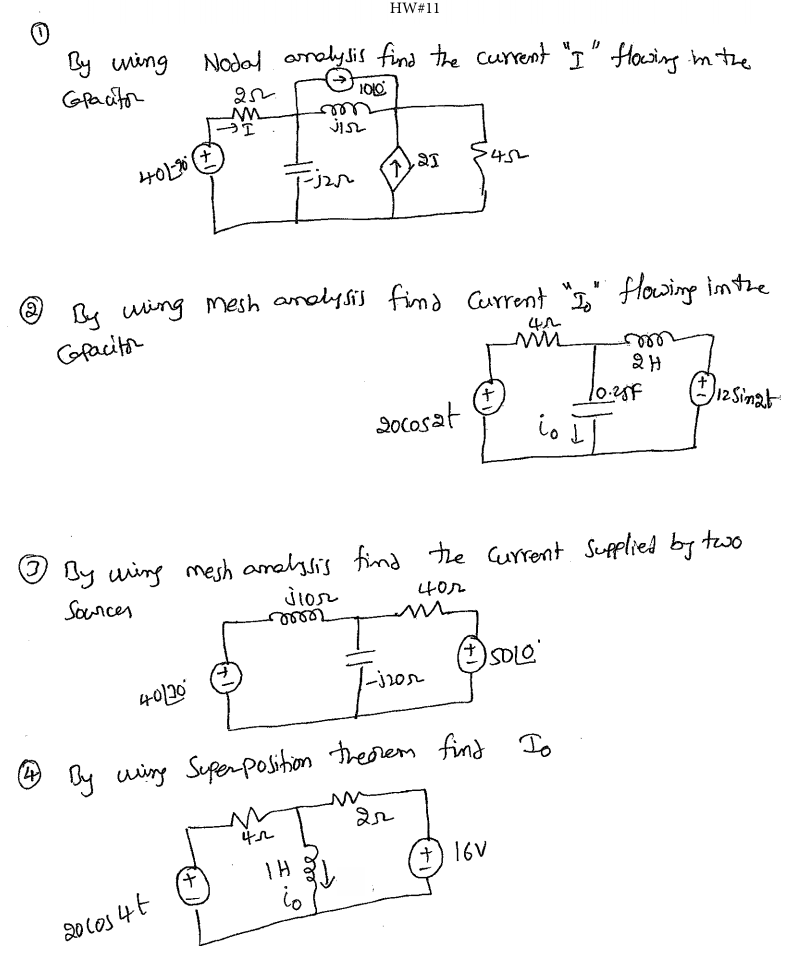 HW#11
①
By using Nodal analysis find the current "I" flowing in the
Capacitor
10∟0°
2Ω
→I
j1Ω
-j2Ω
2I
4Ω
② By using mesh analysis find Current "I₀" flowing in the
Capacitor
4Ω
2H
20cos2t
i₀ ↓
12Sin2t
③ By using mesh analysis find the Current Supplied by two
Sources
j10Ω
40Ω
-j20Ω
50∟0°
④ By using Superposition theorem find I₀
4Ω
2Ω
1H
i₀
16V
20cos4t